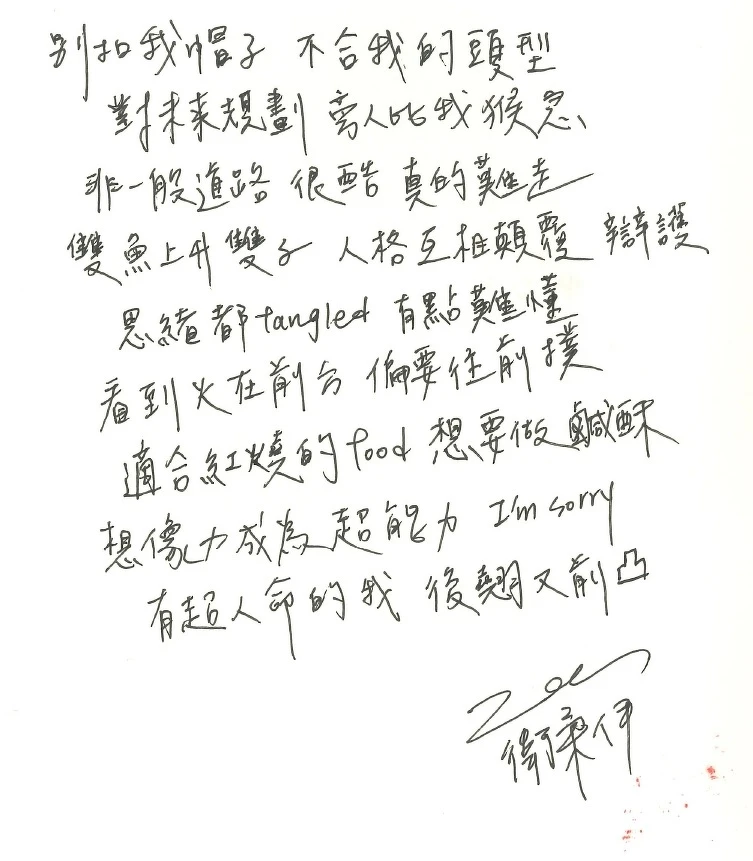 別扣我帽子 不合我的頭型
對未來規劃 旁人比我猴急
非一般進路 很酷 真的難走
雙魚上升雙子 人格互相顛覆 辯護
思緒都tangled 有點難懂
看到火在前台 偏要往前撲
適合紅燒的food 想要做鹹酥
想像力成為超能力 I'm sorry
有超人命的我 後翹又前凸
Zoe
衛
伊